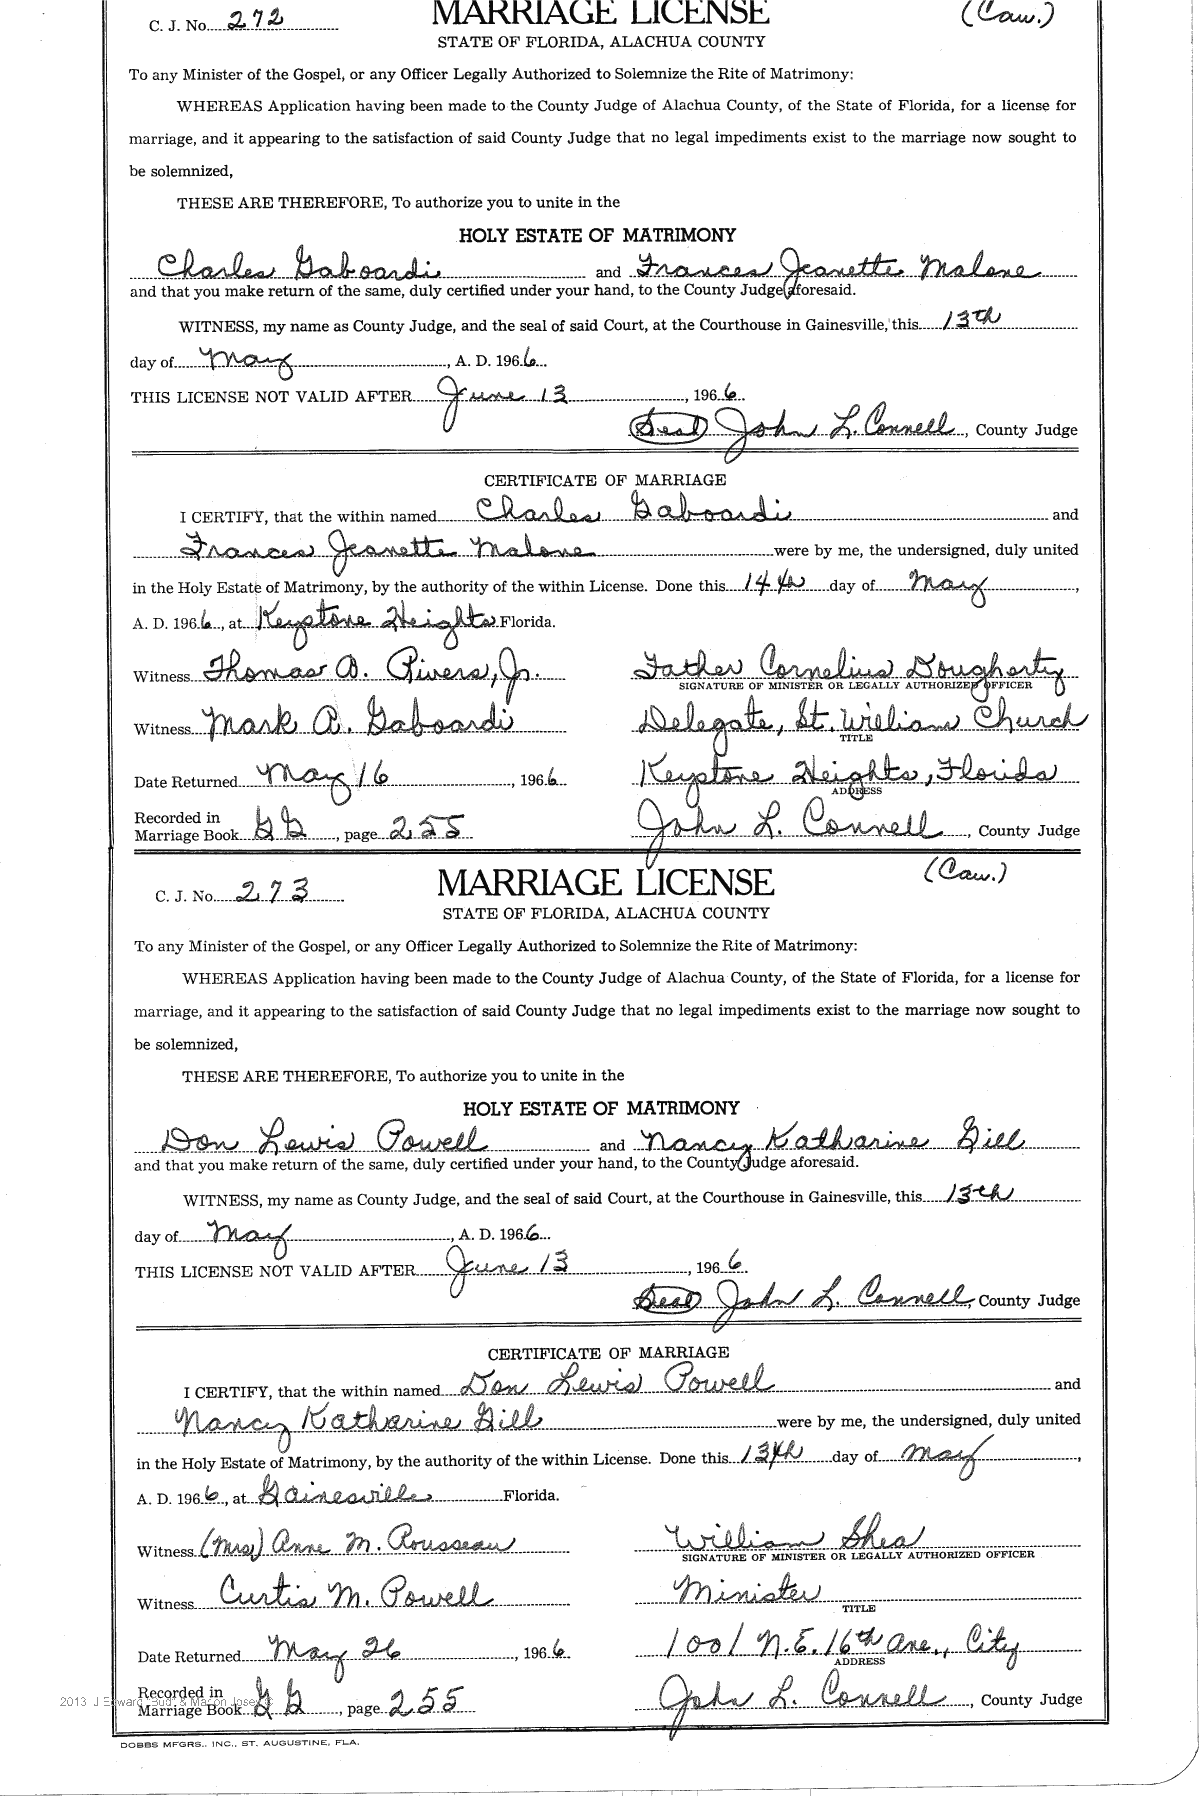 C. J. No. 272 MARRIAGE LICENSE (Caw.)
STATE OF FLORIDA, ALACHUA COUNTY
To any Minister of the Gospel, or any Officer Legally Authorized to Solemnize the Rite of Matrimony:
WHEREAS Application having been made to the County Judge of Alachua County, of the State of Florida, for a license for
marriage, and it appearing to the satisfaction of said County Judge that no legal impediments exist to the marriage now sought to
be solemnized,
THESE ARE THEREFORE, To authorize you to unite in the
HOLY ESTATE OF MATRIMONY
Charles Gaboardi and Frances Jeanette Malone
and that you make return of the same, duly certified under your hand, to the County Judge aforesaid.
WITNESS, my name as County Judge, and the seal of said Court, at the Courthouse in Gainesville, this 13th
day of May, A. D. 1966
THIS LICENSE NOT VALID AFTER June 13, 1966.
(Seal) John L. Connell, County Judge
CERTIFICATE OF MARRIAGE
I CERTIFY, that the within named Charles Gaboardi and
Frances Jeanette Malone were by me, the undersigned, duly united
in the Holy Estate of Matrimony, by the authority of the within License. Done this 14th day of May,
A. D. 1966, at Keystone Heights Florida.
Witness Thomas D. Rivers, Jr. Father Cornelius Dougherty
SIGNATURE OF MINISTER OR LEGALLY AUTHORIZED OFFICER
Witness Mark A. Gaboardi Delegate, St. William Church
TITLE
Date Returned May 16, 1966 Keystone Heights, Florida
ADDRESS
Recorded in
Marriage Book GG, page 255 John L. Connell, County Judge
C. J. No. 273 MARRIAGE LICENSE (Caw.)
STATE OF FLORIDA, ALACHUA COUNTY
To any Minister of the Gospel, or any Officer Legally Authorized to Solemnize the Rite of Matrimony:
WHEREAS Application having been made to the County Judge of Alachua County, of the State of Florida, for a license for
marriage, and it appearing to the satisfaction of said County Judge that no legal impediments exist to the marriage now sought to
be solemnized,
THESE ARE THEREFORE, To authorize you to unite in the
HOLY ESTATE OF MATRIMONY
Don Lewis Powell and Nancy Katharine Gill
and that you make return of the same, duly certified under your hand, to the County Judge aforesaid.
WITNESS, my name as County Judge, and the seal of said Court, at the Courthouse in Gainesville, this 13th
day of May, A. D. 1966
THIS LICENSE NOT VALID AFTER June 13, 1966.
(Seal) John L. Connell, County Judge
CERTIFICATE OF MARRIAGE
I CERTIFY, that the within named Don Lewis Powell and
Nancy Katharine Gill were by me, the undersigned, duly united
in the Holy Estate of Matrimony, by the authority of the within License. Done this 13th day of May,
A. D. 1966, at Gainesville Florida.
Witness (Mrs) Anne M. Rousseau William Shea
SIGNATURE OF MINISTER OR LEGALLY AUTHORIZED OFFICER
Witness Curtis M. Powell Minister
TITLE
Date Returned May 26, 1966 1001 N.E. 16th Ave., City
ADDRESS
Recorded in
Marriage Book GG, page 255 John L. Connell, County Judge
2013 J Edward "Bud" &
DOBBS MFGRS., INC., ST. AUGUSTINE, FLA.